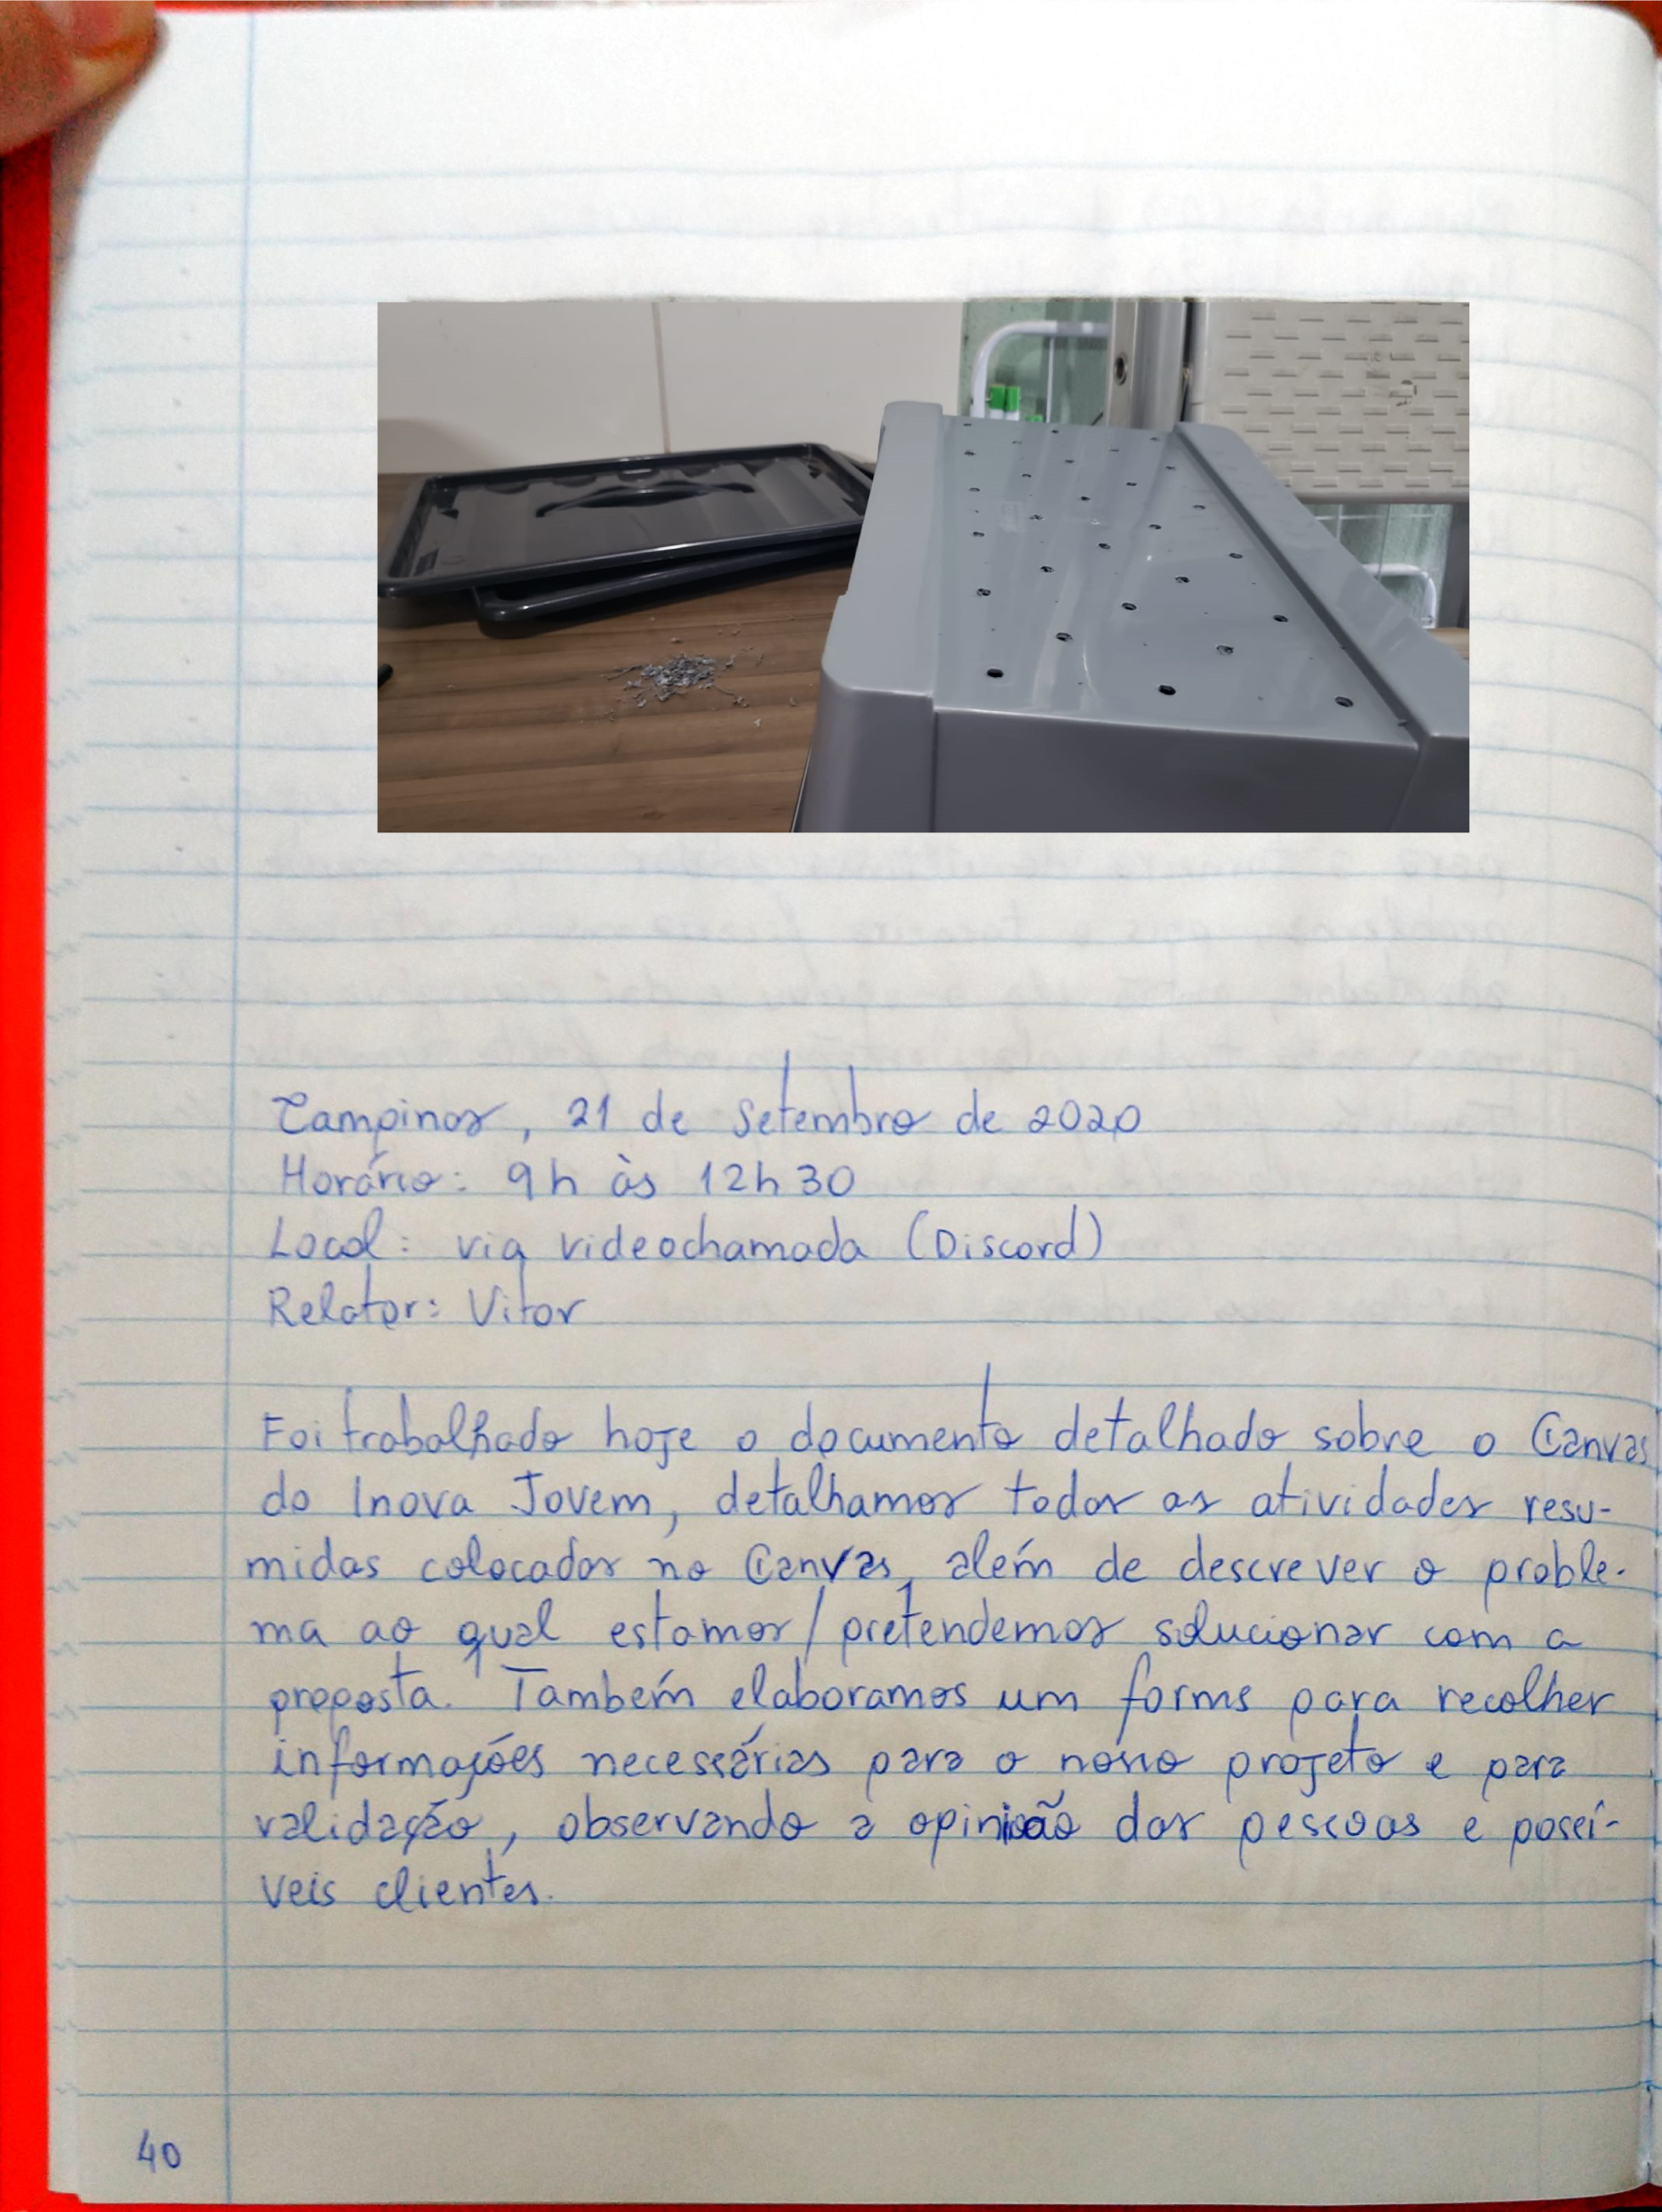 Campinas, 21 de Setembro de 2020
Horário: 9h às 12h30
Local: via videochamada (Discord)
Relator: Vitor
Foi trabalhado hoje o documento detalhado sobre o Canvas
do Inova Jovem, detalhamos todas as atividades resu-
midas colocadas no Canvas, além de descrever o proble-
ma ao qual estamos/pretendemos solucionar com a
proposta. Também elaboramos um forms para recolher
informações necessárias para o nosso projeto e para
validação, observando a opinião das pessoas e possí-
veis clientes.
40